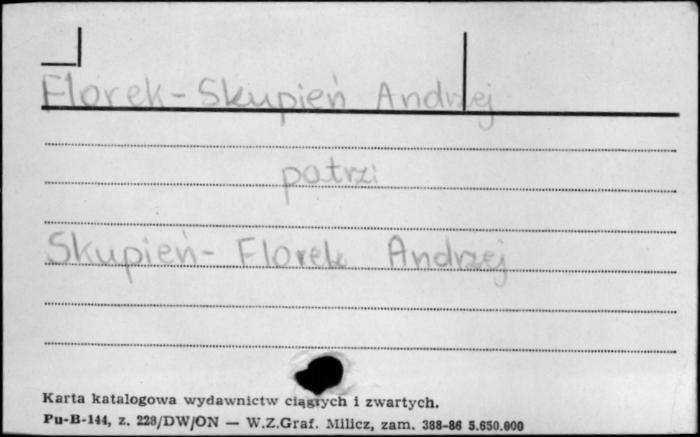 Florek-Skupień Andrzej
patrzi
Skupień-Florek Andrzej
Karta katalogowa wydawnictw ciągłych i zwartych.
Pu-B-144, z. 228/DW/ON — W.Z.Graf. Milicz, zam. 388-86 5.650.000